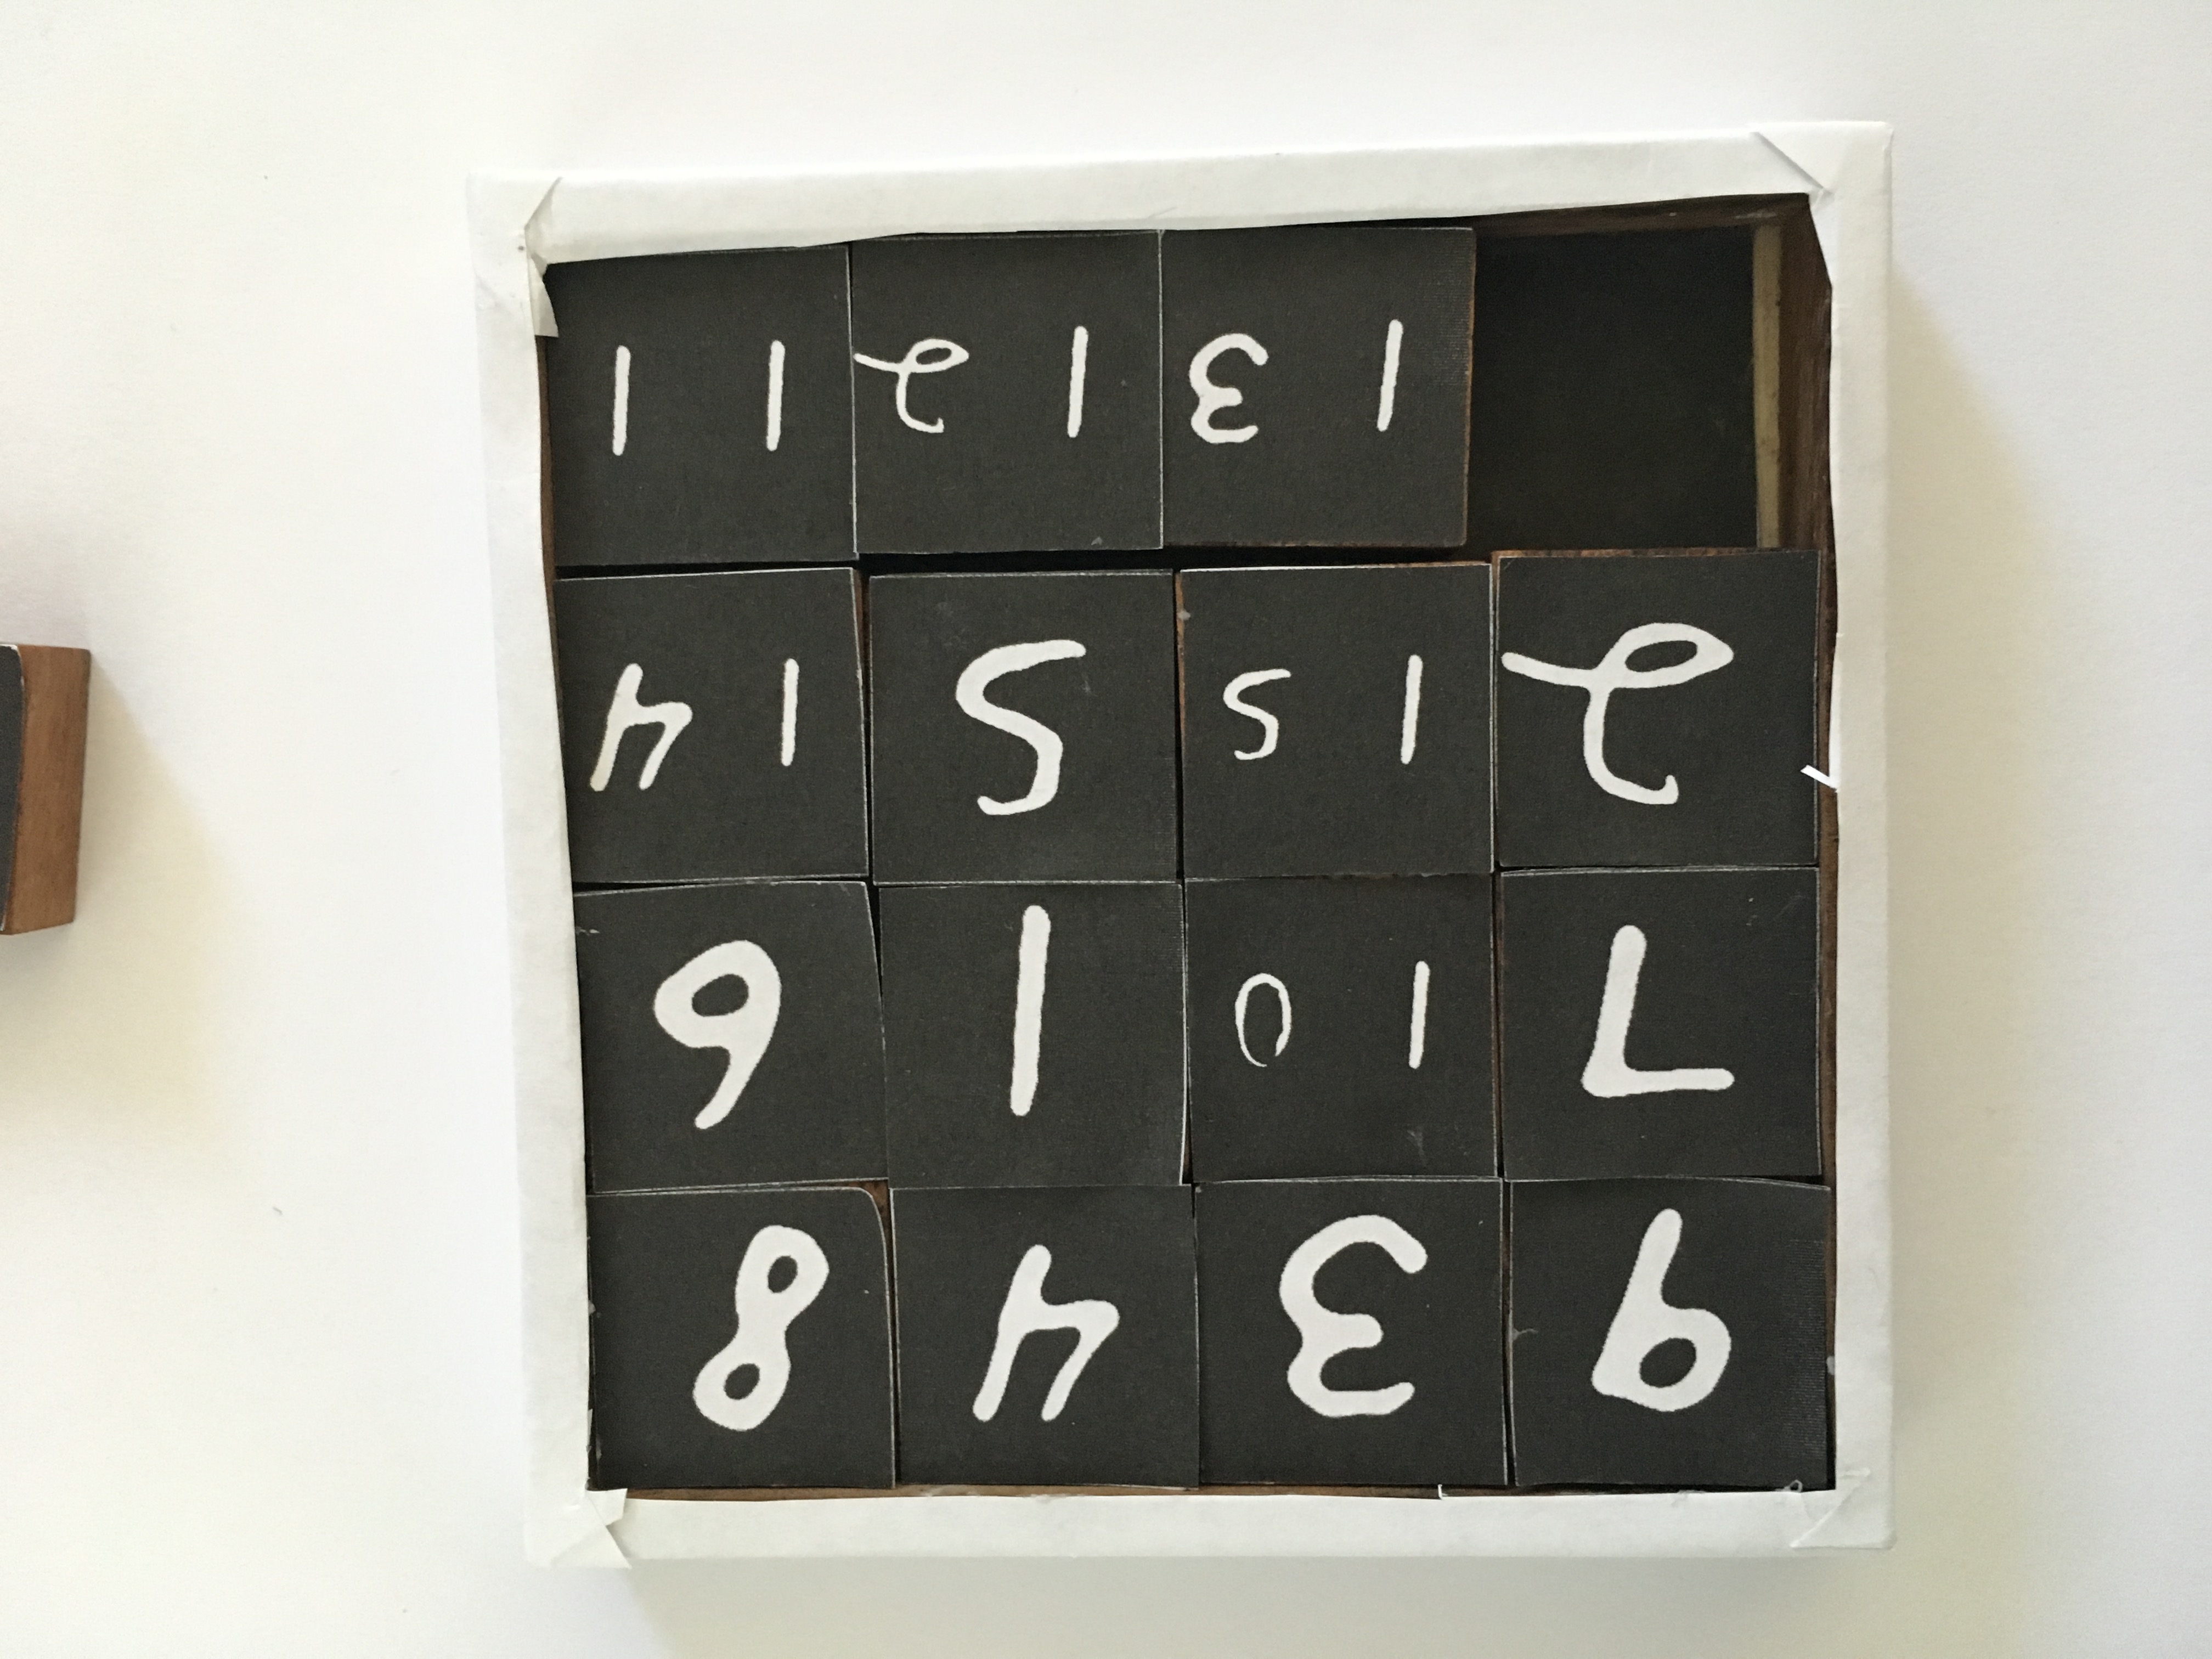 9 3 4 8
7 10 1 6
2 15 5 14
13 12 11